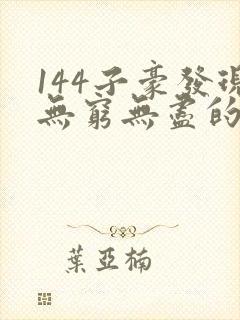 144子豪發現
無窮無盡的
葉亞楠